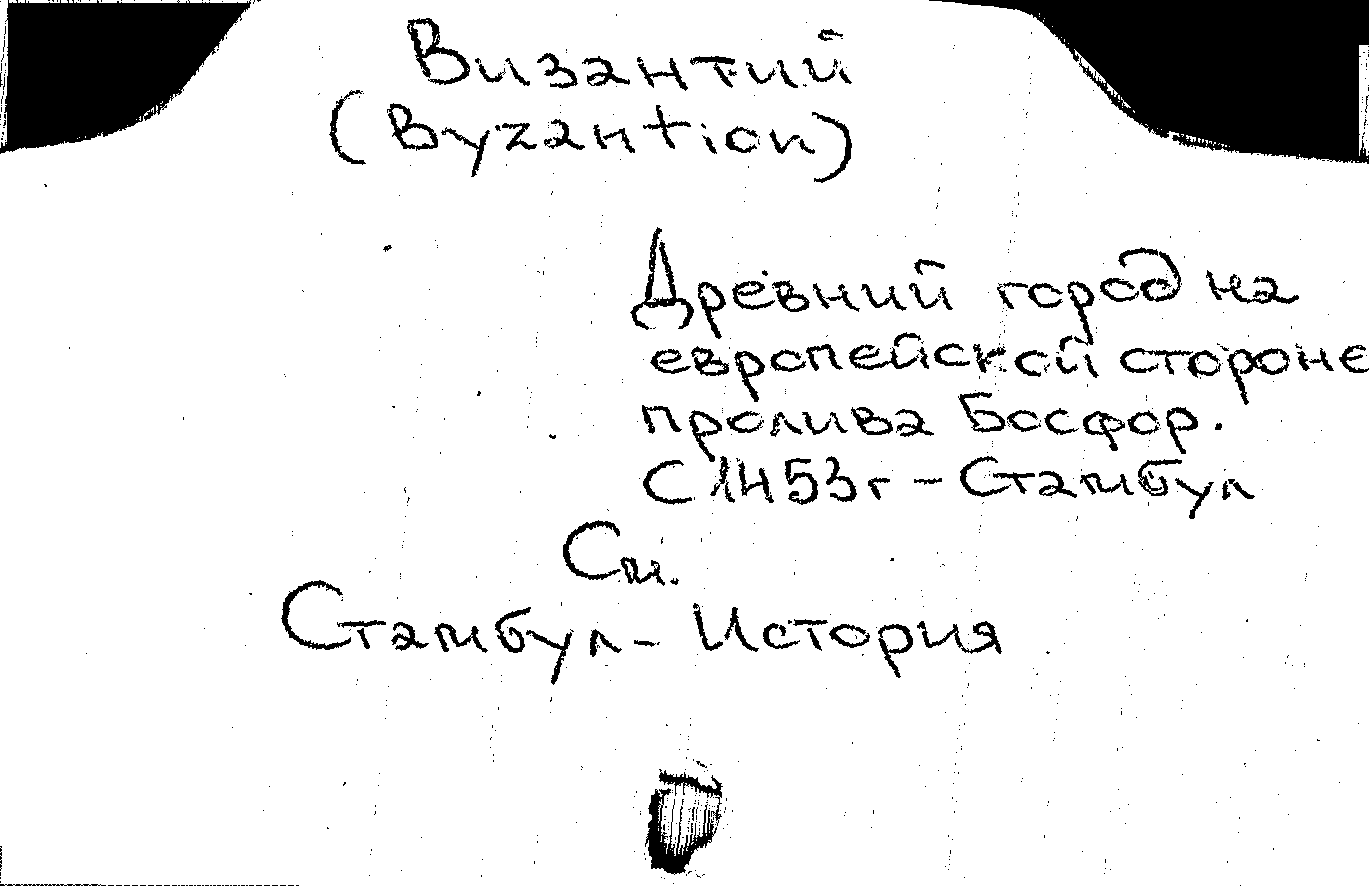 Византий
(Byzantion)
Древний город на
европейской стороне
пролива Босфор.
С 1453г – Стамбул
См.
Стамбул – История